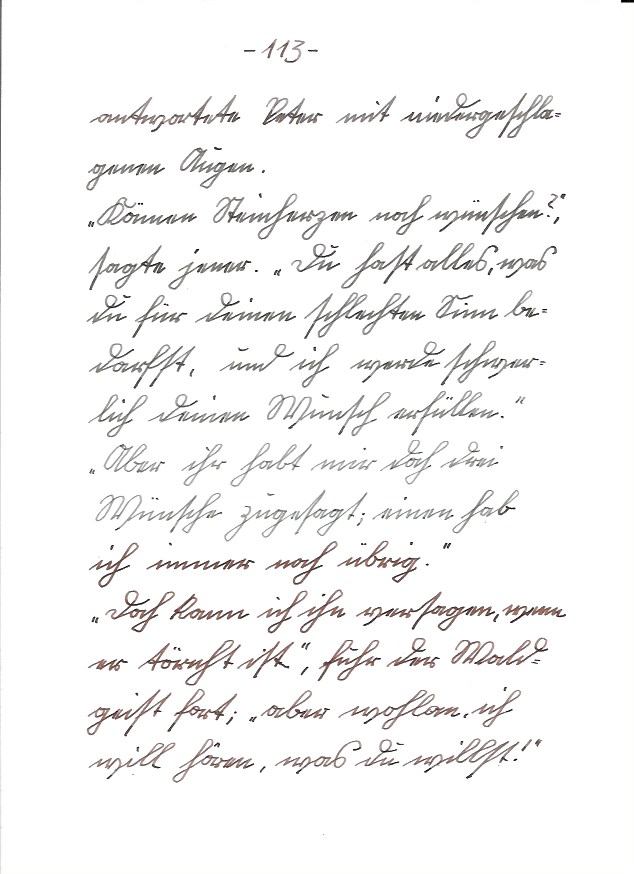 -113-
antwortete Peter mit niedergeschla=
genen Augen.
„Können Steinherzen noch wünschen?",
sagte jener. „Du hast alles, was
du für deinen schlechten Sinn be=
darfst, und ich werde schwer=
lich deinen Wunsch erfüllen."
„Aber ihr habt mir doch drei
Wünsche zugesagt; einen hab
ich immer noch übrig."
„Doch kann ich ihn versagen, wenn
er töricht ist", fuhr der Wald=
geist fort; „aber wohlan, ich
will hören, was du willst!"